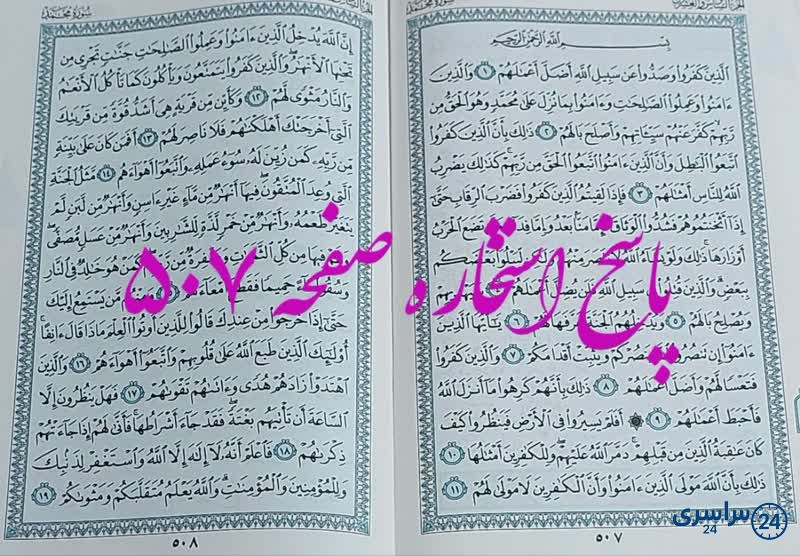 سُورَةُ مُحَمَّدٍ
بِسْمِ اللَّهِ الرَّحْمَٰنِ الرَّحِيمِ
الَّذِينَ كَفَرُوا وَصَدُّوا عَن سَبِيلِ اللَّهِ أَضَلَّ أَعْمَٰلَهُمْ ١ وَالَّذِينَ
ءَامَنُوا وَعَمِلُوا الصَّٰلِحَٰتِ وَءَامَنُوا بِمَا نُزِّلَ عَلَىٰ مُحَمَّدٍ وَهُوَ الْحَقُّ مِن
رَّبِّهِمْ كَفَّرَ عَنْهُمْ سَيِّـَٔاتِهِمْ وَأَصْلَحَ بَالَهُمْ ٢ ذَٰلِكَ بِأَنَّ الَّذِينَ كَفَرُوا
اتَّبَعُوا الْبَٰطِلَ وَأَنَّ الَّذِينَ ءَامَنُوا اتَّبَعُوا الْحَقَّ مِن رَّبِّهِمْ كَذَٰلِكَ يَضْرِبُ
اللَّهُ لِلنَّاسِ أَمْثَٰلَهُمْ ٣ فَإِذَا لَقِيتُمُ الَّذِينَ كَفَرُوا فَضَرْبَ الرِّقَابِ حَتَّىٰ
إِذَا أَثْخَنتُمُوهُمْ فَشُدُّوا الْوَثَاقَ فَإِمَّا مَنًّا بَعْدُ وَإِمَّا فِدَاءً حَتَّىٰ تَضَعَ الْحَرْبُ
أَوْزَارَهَا ذَٰلِكَ وَلَوْ يَشَاءُ اللَّهُ لَانتَصَرَ مِنْهُمْ وَلَٰكِن لِّيَبْلُوَا بَعْضَكُم
بِبَعْضٍ وَالَّذِينَ قُتِلُوا فِي سَبِيلِ اللَّهِ فَلَن يُضِلَّ أَعْمَٰلَهُمْ ٤ سَيَهْدِيهِمْ
وَيُصْلِحُ بَالَهُمْ ٥ وَيُدْخِلُهُمُ الْجَنَّةَ عَرَّفَهَا لَهُمْ ٦ يَٰأَيُّهَا الَّذِينَ
ءَامَنُوا إِن تَنصُرُوا اللَّهَ يَنصُرْكُمْ وَيُثَبِّتْ أَقْدَامَكُمْ ٧ وَالَّذِينَ كَفَرُوا
فَتَعْسًا لَّهُمْ وَأَضَلَّ أَعْمَٰلَهُمْ ٨ ذَٰلِكَ بِأَنَّهُمْ كَرِهُوا مَا أَنزَلَ اللَّهُ
فَأَحْبَطَ أَعْمَٰلَهُمْ ٩ ۞ أَفَلَمْ يَسِيرُوا فِي الْأَرْضِ فَيَنظُرُوا كَيْفَ
كَانَ عَٰقِبَةُ الَّذِينَ مِن قَبْلِهِمْ دَمَّرَ اللَّهُ عَلَيْهِمْ وَلِلْكَٰفِرِينَ أَمْثَٰلُهَا ١٠
ذَٰلِكَ بِأَنَّ اللَّهَ مَوْلَى الَّذِينَ ءَامَنُوا وَأَنَّ الْكَٰفِرِينَ لَا مَوْلَىٰ لَهُمْ ١١
٥٠٧
سُورَةُ مُحَمَّدٍ
إِنَّ اللَّهَ يُدْخِلُ الَّذِينَ ءَامَنُوا وَعَمِلُوا الصَّٰلِحَٰتِ جَنَّٰتٍ تَجْرِي مِن
تَحْتِهَا الْأَنْهَٰرُ وَالَّذِينَ كَفَرُوا يَتَمَتَّعُونَ وَيَأْكُلُونَ كَمَا تَأْكُلُ الْأَنْعَٰمُ
وَالنَّارُ مَثْوًى لَّهُمْ ١٢ وَكَأَيِّن مِّن قَرْيَةٍ هِيَ أَشَدُّ قُوَّةً مِّن قَرْيَتِكَ
الَّتِي أَخْرَجَتْكَ أَهْلَكْنَٰهُمْ فَلَا نَاصِرَ لَهُمْ ١٣ أَفَمَن كَانَ عَلَىٰ بَيِّنَةٍ
مِّن رَّبِّهِ كَمَن زُيِّنَ لَهُ سُوءُ عَمَلِهِ وَاتَّبَعُوا أَهْوَاءَهُم ١٤ مَّثَلُ الْجَنَّةِ
الَّتِي وُعِدَ الْمُتَّقُونَ فِيهَا أَنْهَٰرٌ مِّن مَّاءٍ غَيْرِ ءَاسِنٍ وَأَنْهَٰرٌ مِّن لَّبَنٍ لَّمْ
يَتَغَيَّرْ طَعْمُهُ وَأَنْهَٰرٌ مِّنْ خَمْرٍ لَّذَّةٍ لِّلشَّٰرِبِينَ وَأَنْهَٰرٌ مِّنْ عَسَلٍ مُّصَفًّى
وَلَهُمْ فِيهَا مِن كُلِّ الثَّمَرَٰتِ وَمَغْفِرَةٌ مِّن رَّبِّهِمْ كَمَنْ هُوَ خَٰلِدٌ فِي النَّارِ
وَسُقُوا مَاءً حَمِيمًا فَقَطَّعَ أَمْعَاءَهُمْ ١٥ وَمِنْهُم مَّن يَسْتَمِعُ إِلَيْكَ
حَتَّىٰ إِذَا خَرَجُوا مِنْ عِندِكَ قَالُوا لِلَّذِينَ أُوتُوا الْعِلْمَ مَاذَا قَالَ ءَانِفًا
أُولَٰئِكَ الَّذِينَ طَبَعَ اللَّهُ عَلَىٰ قُلُوبِهِمْ وَاتَّبَعُوا أَهْوَاءَهُمْ ١٦ وَالَّذِينَ
اهْتَدَوْا زَادَهُمْ هُدًى وَءَاتَىٰهُمْ تَقْوَىٰهُمْ ١٧ فَهَلْ يَنظُرُونَ إِلَّا
السَّاعَةَ أَن تَأْتِيَهُم بَغْتَةً فَقَدْ جَاءَ أَشْرَاطُهَا فَأَنَّىٰ لَهُمْ إِذَا جَاءَتْهُمْ
ذِكْرَىٰهُمْ ١٨ فَاعْلَمْ أَنَّهُ لَا إِلَٰهَ إِلَّا اللَّهُ وَاسْتَغْفِرْ لِذَنبِكَ
وَلِلْمُؤْمِنِينَ وَالْمُؤْمِنَٰتِ وَاللَّهُ يَعْلَمُ مُتَقَلَّبَكُمْ وَمَثْوَىٰكُمْ ١٩
٥٠٨
پاسخ استخاره صفحه ۵۰۷
سراسری 24
24